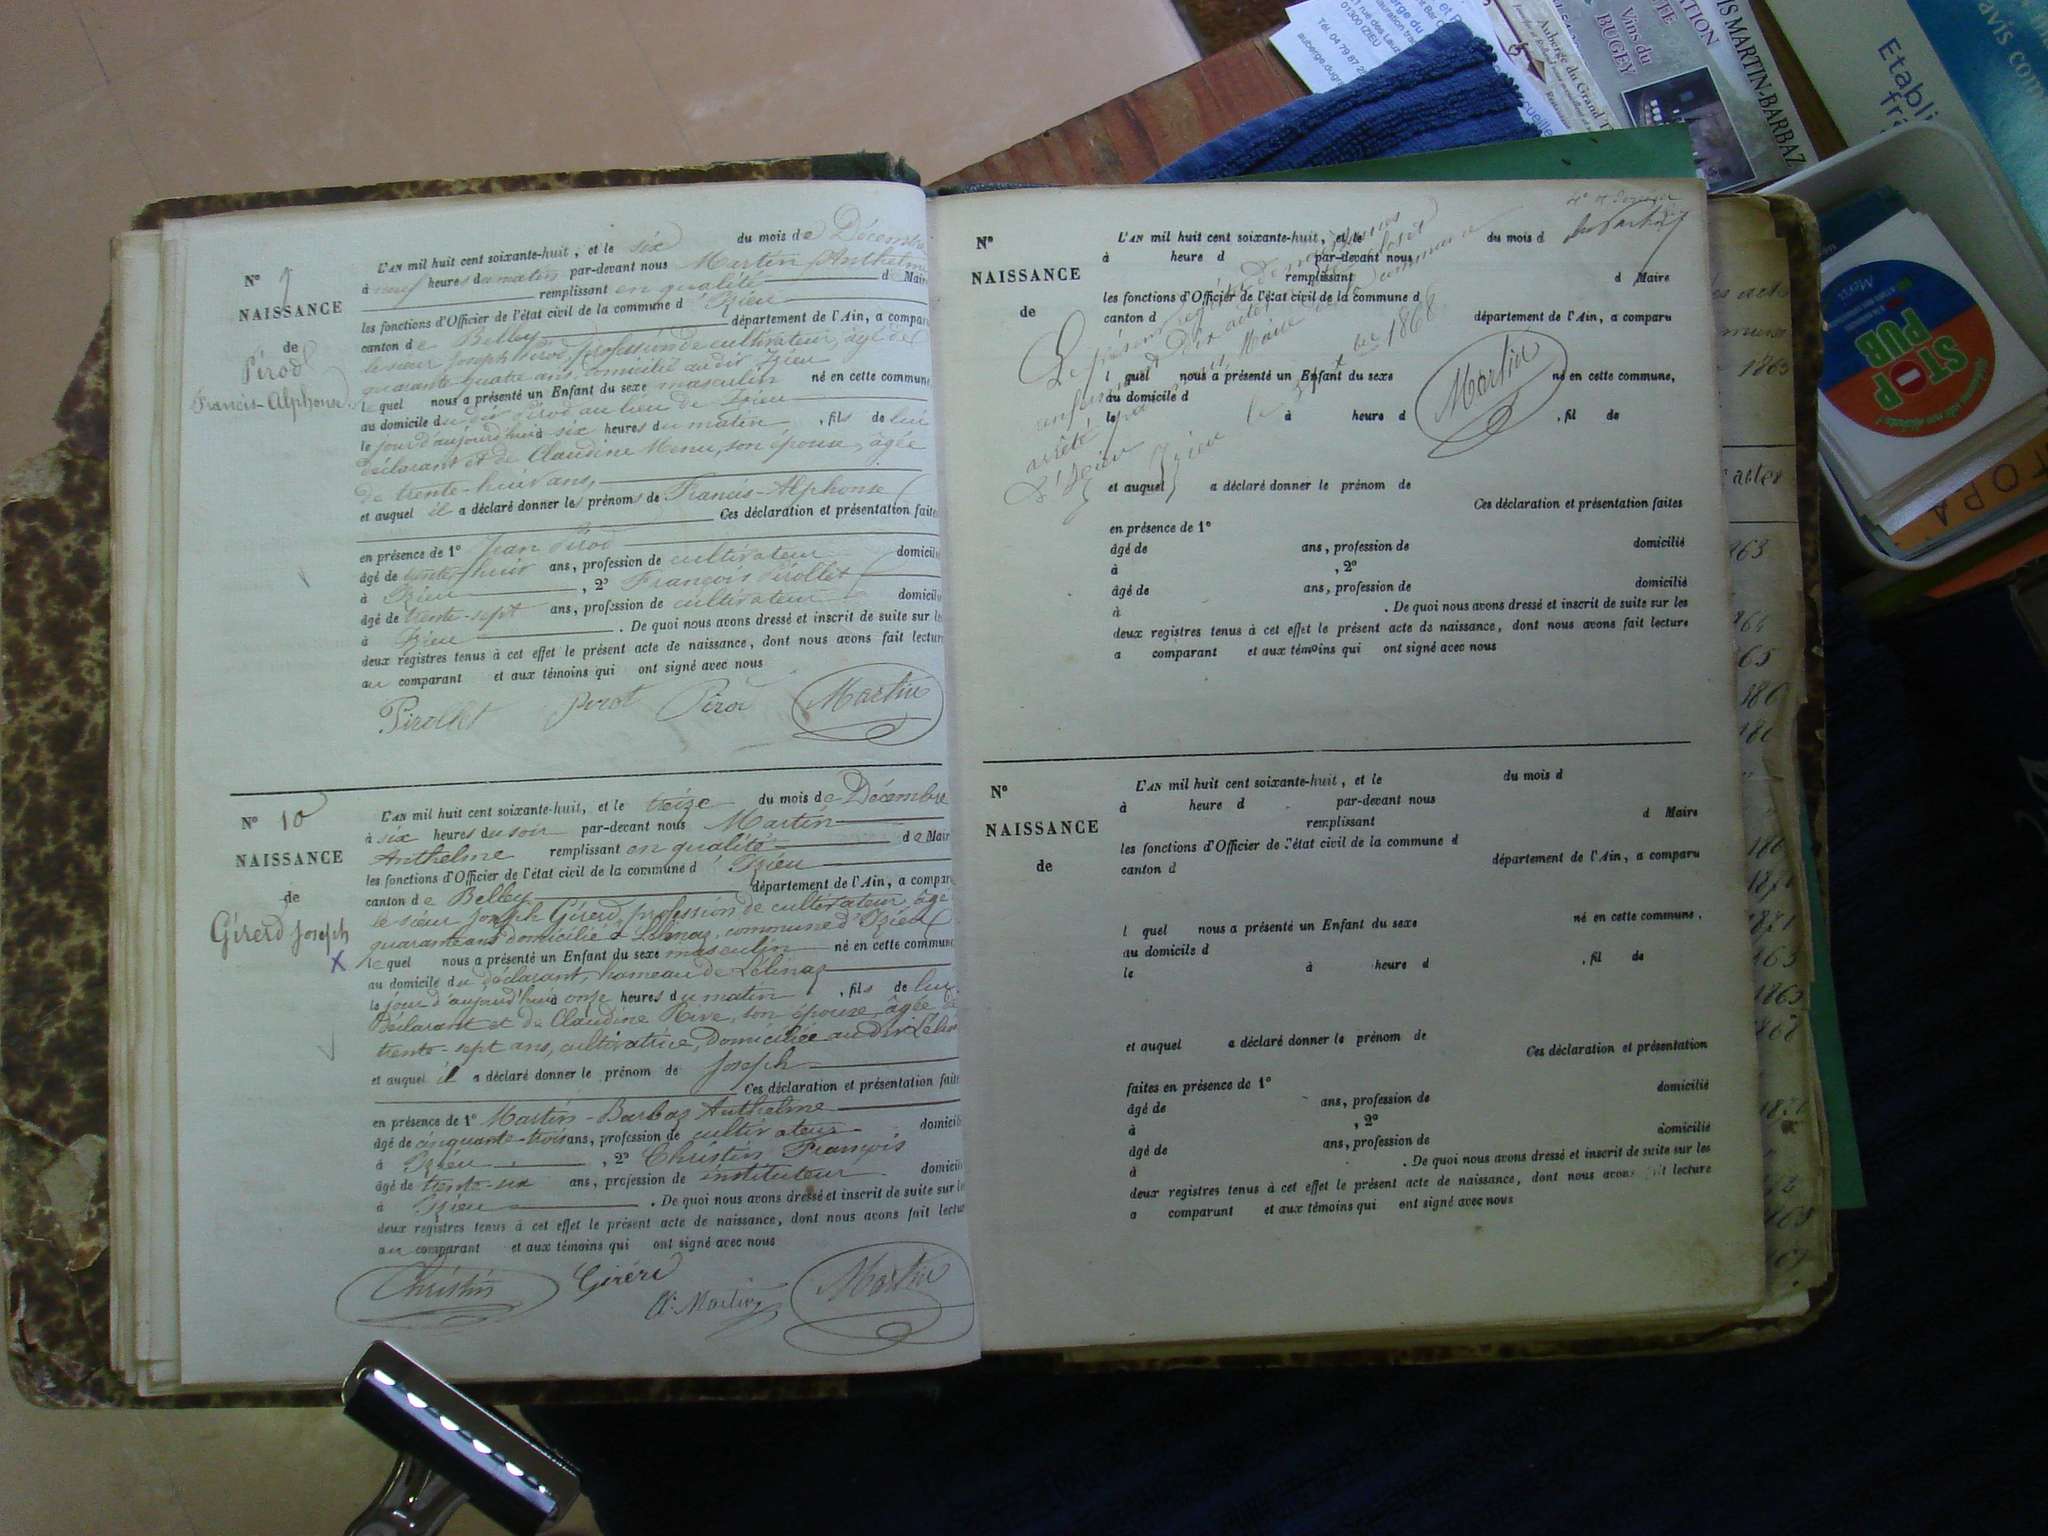 N° 9
NAISSANCE
de
Pirod
Francis-Alphonse
L'AN mil huit cent soixante-huit, et le six du mois de Décembre
à neuf heures du matin par-devant nous Martin Anthelme
remplissant en qualité de Maire
les fonctions d'Officier de l'état civil de la commune d'Izieu
canton de Belley département de l'Ain, a comparu
le sieur Joseph Pirod, profession de cultivateur, âgé de
quarante quatre ans, domicilié au dit Izieu
lequel nous a présenté un Enfant du sexe masculin né en cette commune,
au domicile du dit Pirod au lieu de Izieu
le jour d'aujourd'hui à six heures du matin, fils de lui
déclarant et de Claudine Menu, son épouse, âgée
de trente-huit ans,
et auquel il a déclaré donner les prénoms de Francis-Alphonse
Ces déclaration et présentation faites
en présence de 1° Jean Pirod
âgé de trente-huit ans, profession de cultivateur domicilié
à Izieu, 2° François Pirollet
âgé de trente-sept ans, profession de cultivateur domicilié
à Izieu. De quoi nous avons dressé et inscrit de suite sur les
deux registres tenus à cet effet le présent acte de naissance, dont nous avons fait lecture
au comparant et aux témoins qui ont signé avec nous
Pirollet Pirod Martin
N° 10
NAISSANCE
de
Girerd Joseph
X
L'AN mil huit cent soixante-huit, et le treize du mois de Décembre
à six heures du soir par-devant nous Martin
Anthelme remplissant en qualité de Maire
les fonctions d'Officier de l'état civil de la commune d'Izieu
canton de Belley département de l'Ain, a comparu
le sieur Joseph Girerd, profession de cultivateur, âgé
quarante ans domicilié à Lélinaz, commune d'Izieu
lequel nous a présenté un Enfant du sexe masculin né en cette commune
au domicile du déclarant, hameau de Lélinaz
le jour d'aujourd'hui à onze heures du matin, fils de lui
Déclarant et de Claudine Rive, son épouse, âgée de
trente-sept ans, cultivatrice, domiciliée au dit
et auquel il a déclaré donner le prénom de Joseph
Ces déclaration et présentation faites
en présence de 1° Martin-Barbaz Anthelme
âgé de cinquante-trois ans, profession de cultivateur domicilié
à Izieu, 2° Christin François
âgé de trente-six ans, profession de instituteur domicilié
à Izieu. De quoi nous avons dressé et inscrit de suite sur les
deux registres tenus à cet effet le présent acte de naissance, dont nous avons fait lecture
au comparant et aux témoins qui ont signé avec nous
Christin Girerd Martin
N°
NAISSANCE
de
L'AN mil huit cent soixante-huit, et le du mois d
à heure d par-devant nous
remplissant d Maire
les fonctions d'Officier de l'état civil de la commune d
canton d département de l'Ain, a comparu
l quel nous a présenté un Enfant du sexe né en cette commune,
au domicile d
le à heure d , fil de
et auquel a déclaré donner le prénom de
Ces déclaration et présentation faites
en présence de 1°
âgé de ans, profession de domicilié
à , 2°
âgé de ans, profession de domicilié
à . De quoi nous avons dressé et inscrit de suite sur les
deux registres tenus à cet effet le présent acte de naissance, dont nous avons fait lecture
a comparant et aux témoins qui ont signé avec nous
Le présent registre
arrêté par nous Maire de la commune
d'Izieu Izieu le 1868
Martin
N°
NAISSANCE
de
L'AN mil huit cent soixante-huit, et le du mois d
à heure d par-devant nous
remplissant d Maire
les fonctions d'Officier de l'état civil de la commune d
canton d département de l'Ain, a comparu
l quel nous a présenté un Enfant du sexe né en cette commune,
au domicile d
le à heure d , fil de
et auquel a déclaré donner le prénom de
Ces déclaration et présentation
faites en présence de 1°
âgé de ans, profession de domicilié
à , 2°
âgé de ans, profession de domicilié
à . De quoi nous avons dressé et inscrit de suite sur les
deux registres tenus à cet effet le présent acte de naissance, dont nous avons fait lecture
a comparant et aux témoins qui ont signé avec nous
01300 IZIEU
Tél. 04 79 87 2
Auberge du Grand
Vins du
BUGEY
MARTIN-BARBAZ
Etabli
avis com
STOP
PUB
TOPA